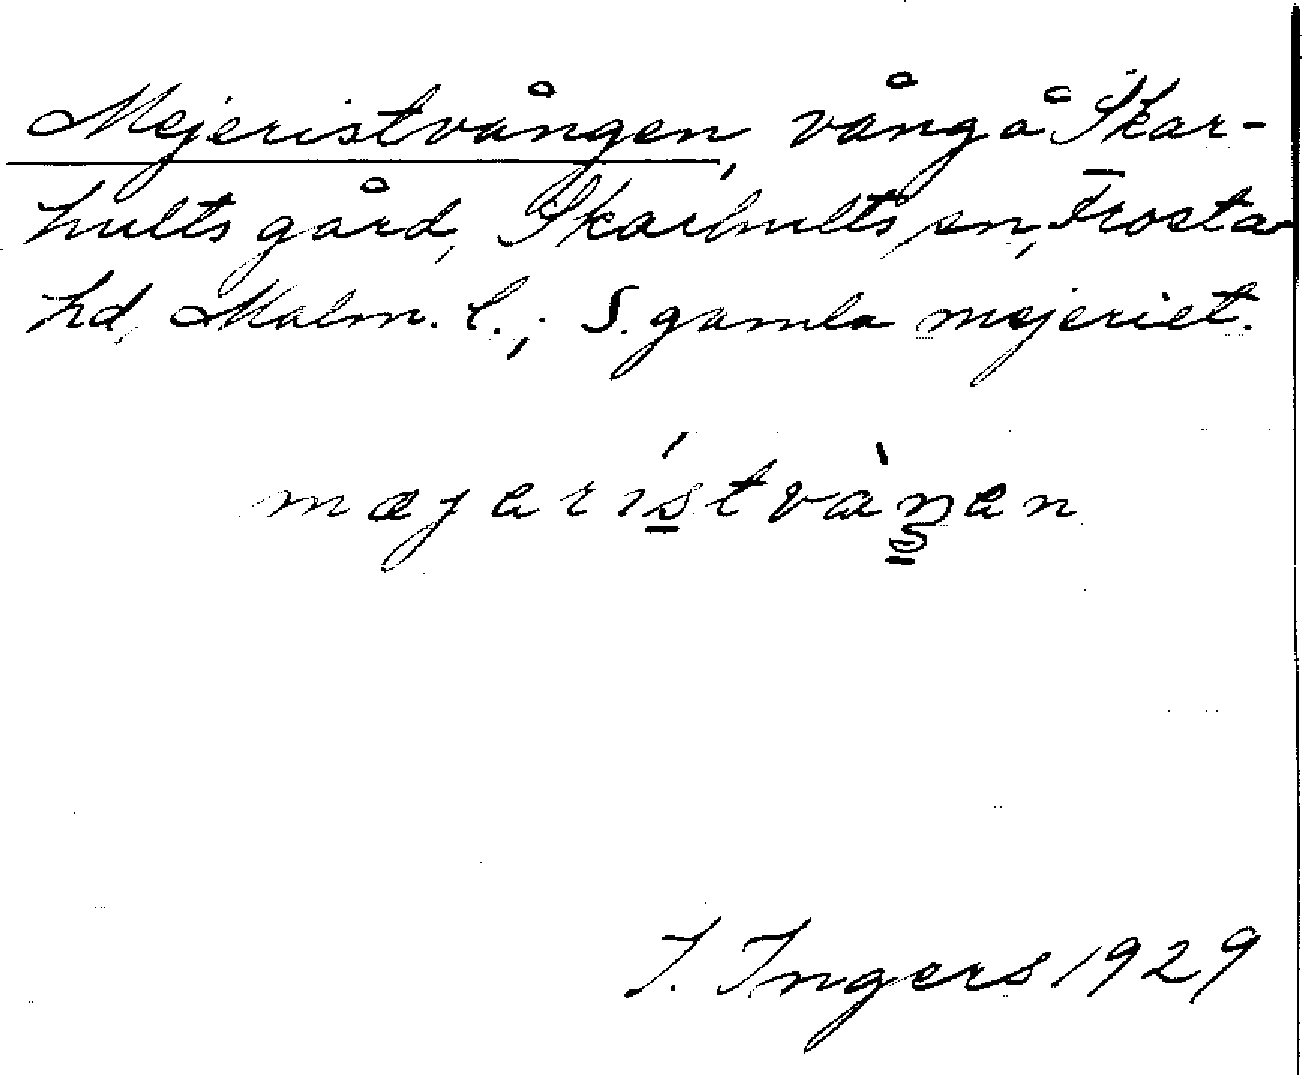 Mejeristvången, vång å Skar-
hults gård, Skarhults sn, Frosta
hd, Malm. l.; S. gamla mejeriet.
mæjerístvàŋen
I. Ingers 1929